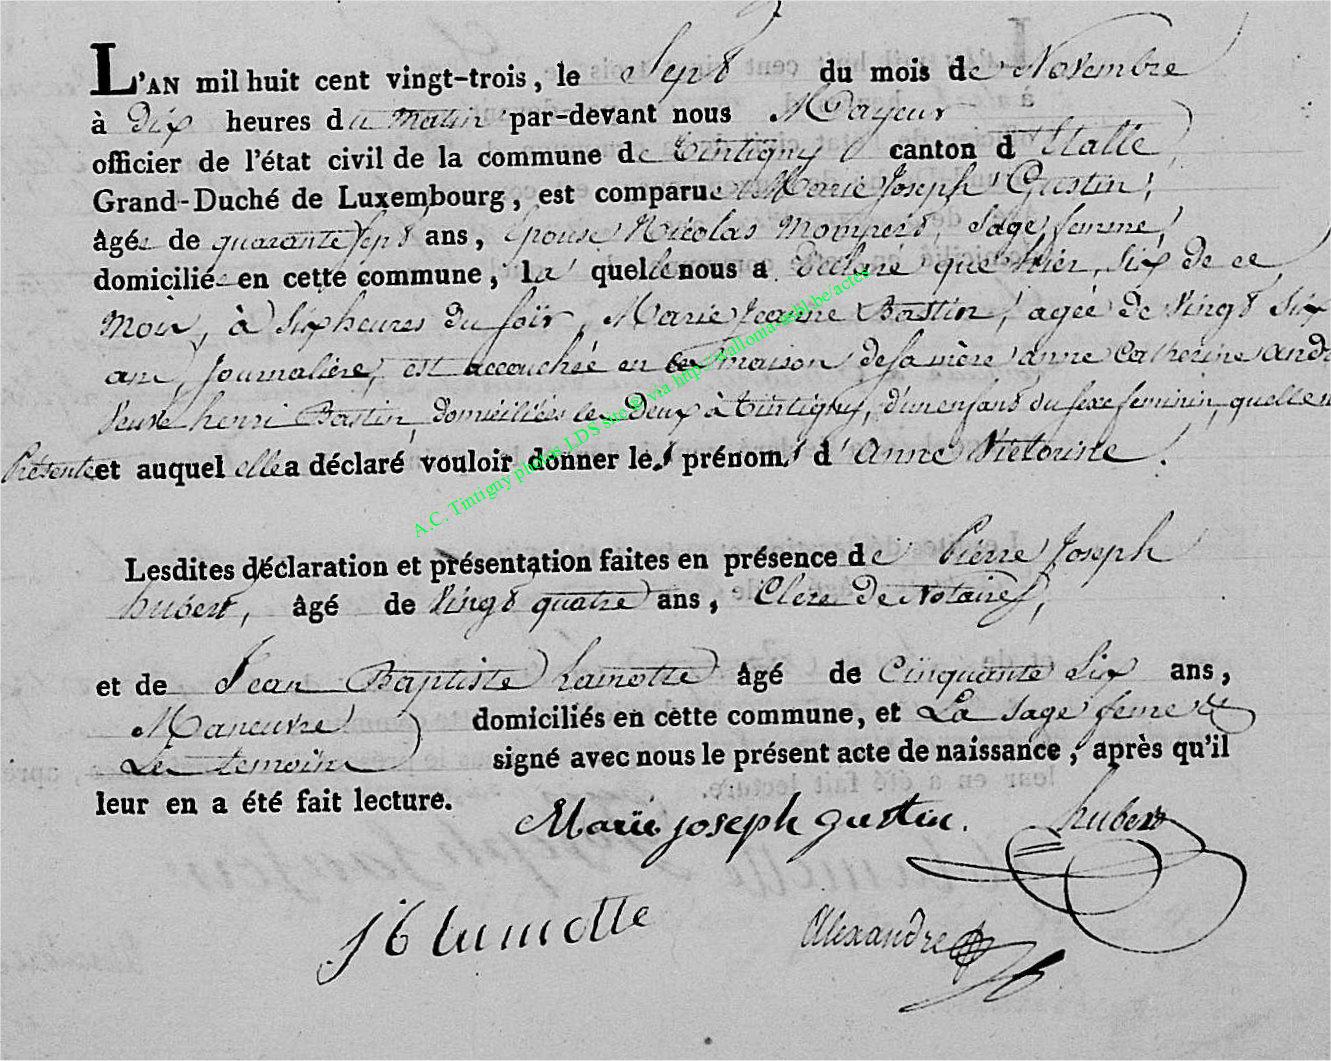 L'AN mil huit cent vingt-trois, le Sept du mois de Novembre
à Dix heures du matin par-devant nous Mayeur
officier de l'état civil de la commune de Tintigny canton d'Etalle,
Grand-Duché de Luxembourg, est comparue Marie Joseph Gustin,
âgée de quarante sept ans, Epouse Nicolas Sage femme,
domiciliée en cette commune, la quelle nous a déclaré que hier, six de ce
mois, à six heures du soir, Marie Jeanne Bastin, agée de vingt six
ans, Journalière, est accouchée en la maison de sa mère anne Catherine andr
veuve henri Bastin, domiciliées les deux à tintigny, d'un enfant du sexe feminin, quelle n
Présente et auquel elle a déclaré vouloir donner les prénoms d'Anne Victorine.
Lesdites déclaration et présentation faites en présence de Pierre Joseph
hubert, âgé de vingt quatre ans, Clerc de Notaire,
et de Jean Baptiste Lamotte âgé de Cinquante Six ans,
Maneuvre domiciliés en cette commune, et La sage feme et
Les temoins signé avec nous le présent acte de naissance, après qu'il
leur en a été fait lecture.
Marie joseph gustin. hubert
J b lamotte Alexandre
A.C. Tintigny photos LDS site & via http://wallonia-asbl.be/actes